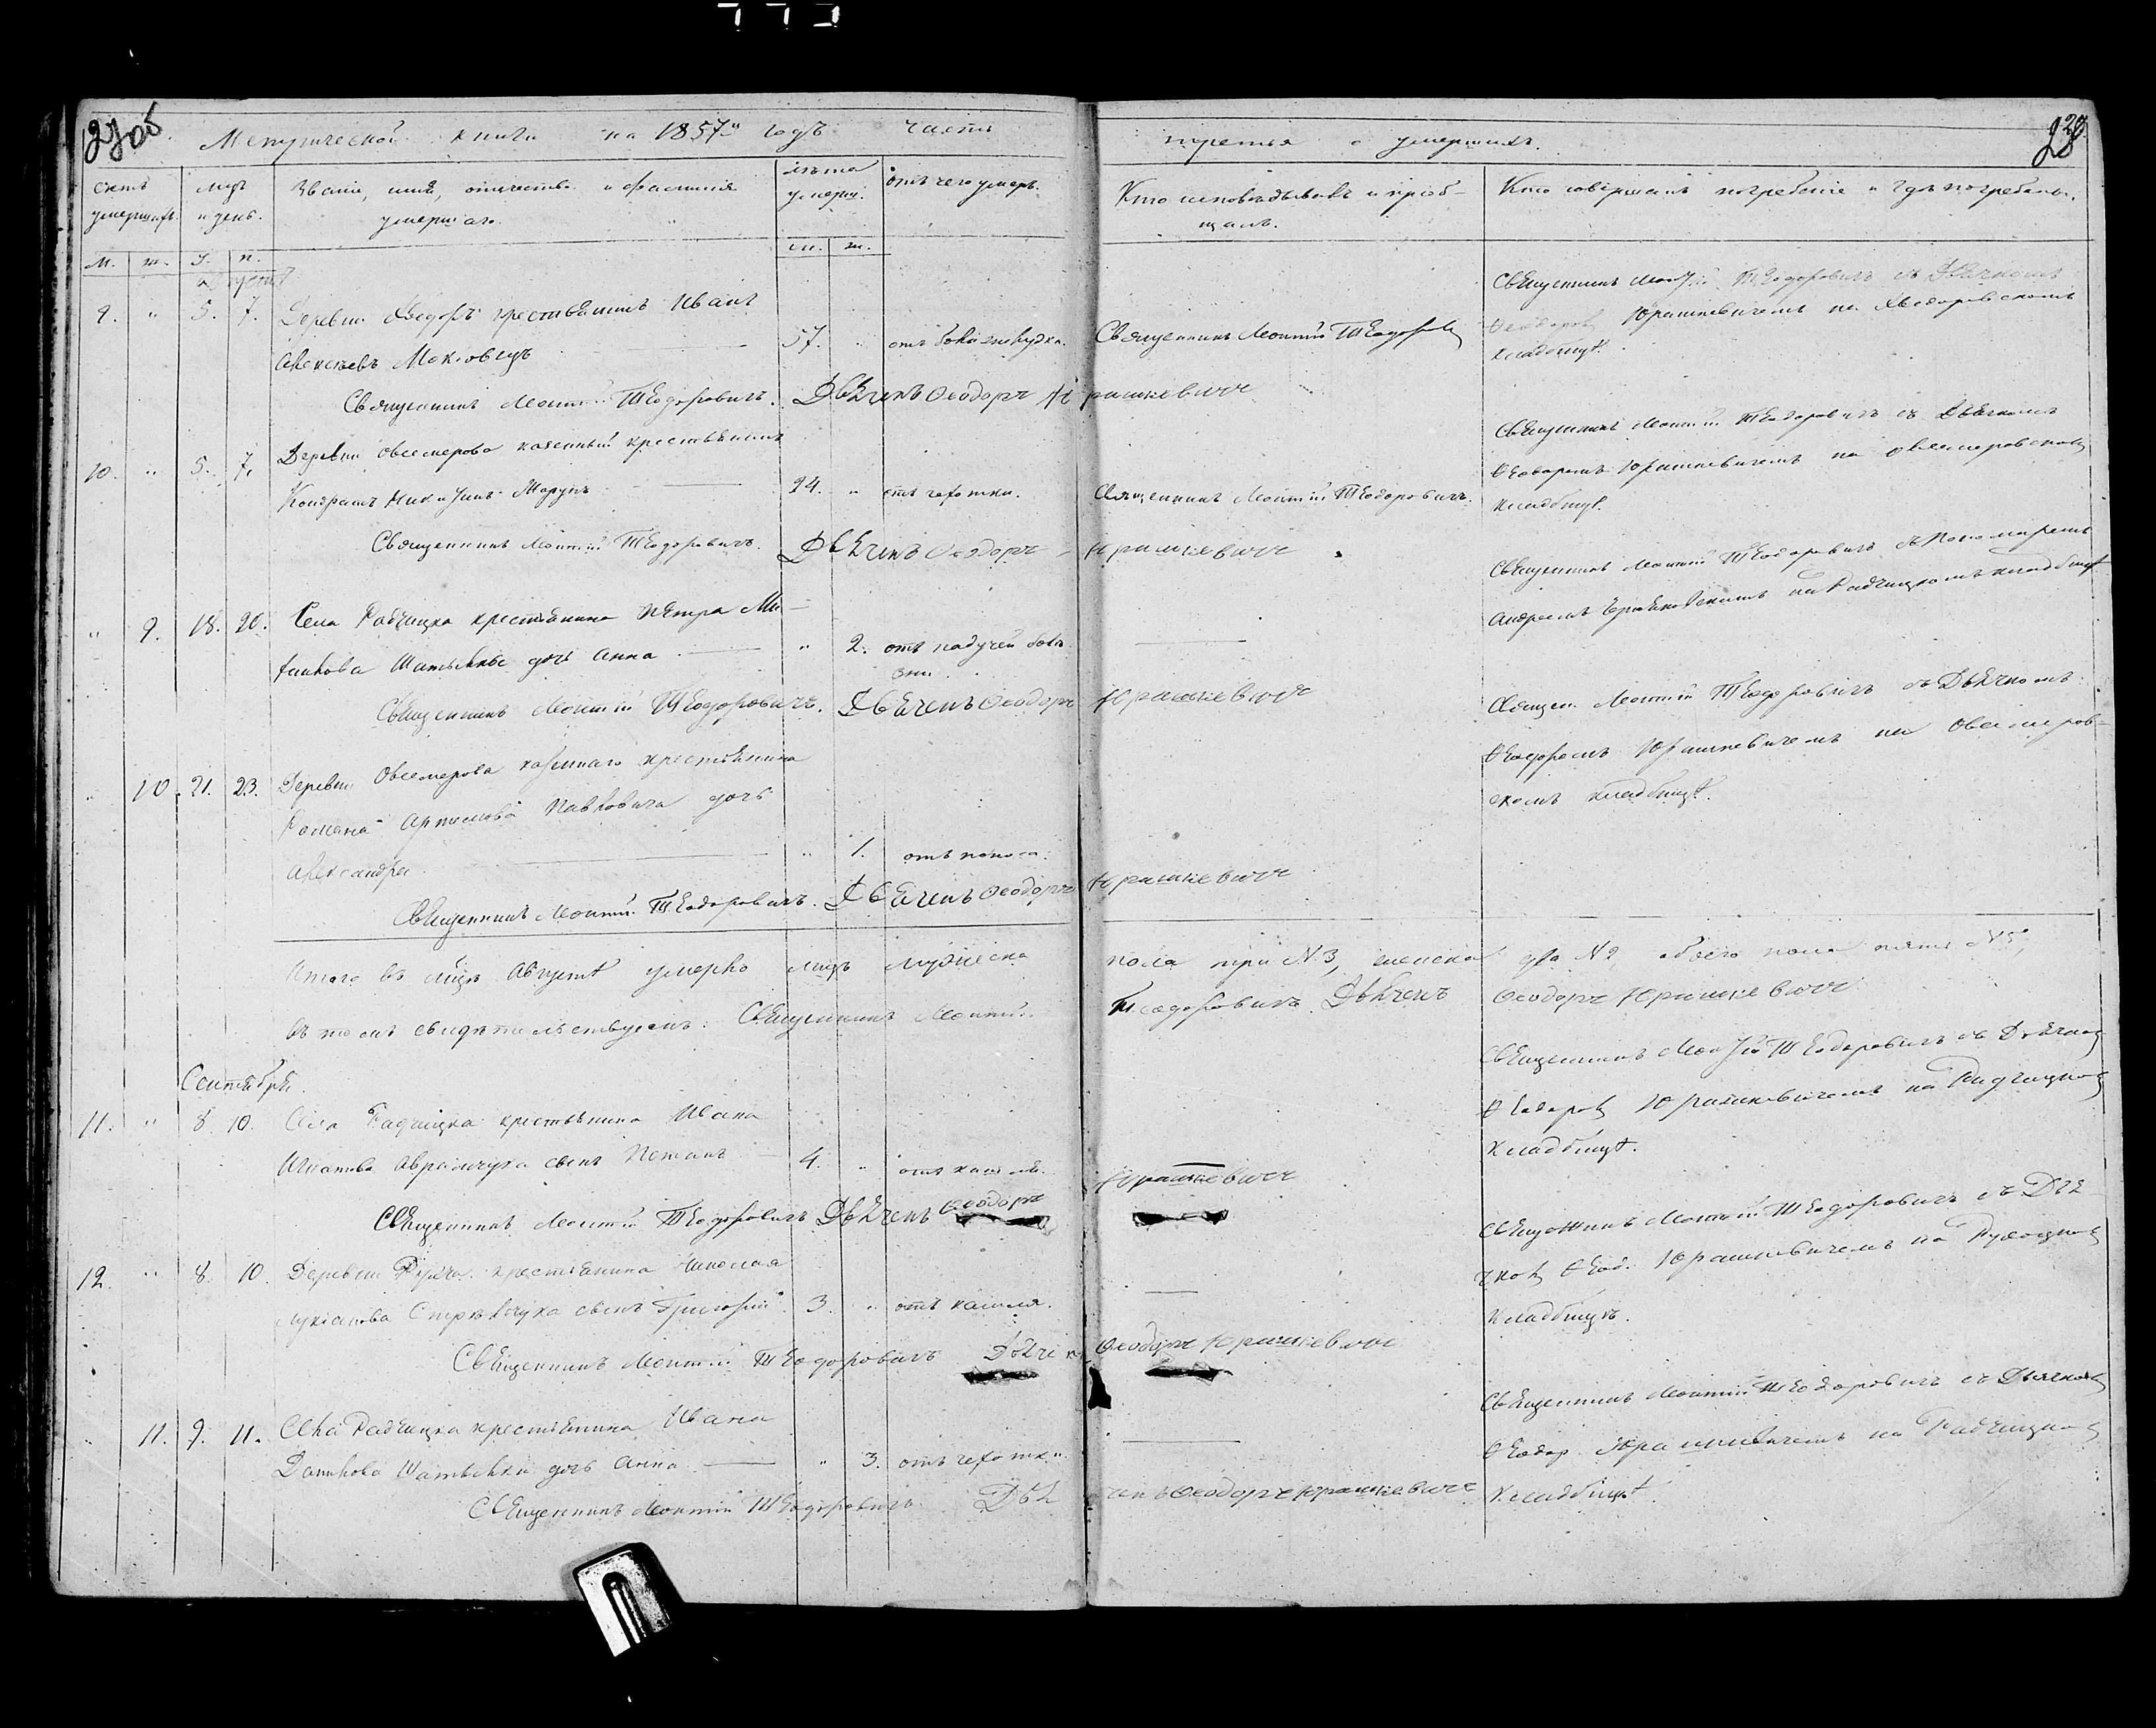 27об
28
Метрической книги на 1857й годъ часть третья о умершихъ.
Счетъ умершихъ.
мцъ и день.
Званіе, имя, отчество и фамилія умершаго.
лѣта умерш.
отъ чего умеръ.
Кто исповѣдывалъ и пріобщалъ.
Кто совершалъ погребеніе и гдѣ погребены.
м. ж. у. п. м. ж.
Августъ
9. " 5. 7. Деревни Ѳедоръ крестьянинъ Иванъ
Алексѣевъ Маковецъ 57. " отъ Священникъ Леонтій Теодоров
Священникъ Леонтій Теодоровичъ съ Дьячкомъ
Ѳеодоромъ Юрашкевичемъ на Ѳедоровскомъ
кладбищѣ.
Священникъ Леонтій Теодоровичъ. Дьячекъ Ѳеодоръ Юрашкевичъ
10. " 5. 7. Деревни Овсемерова казенный крестьянинъ
Кондратъ Марукъ 24. " отъ чахотки. Священникъ Леонтій Теодоровичъ.
Священникъ Леонтій Теодоровичъ съ Дьячкомъ
Ѳеодоромъ Юрашкевичемъ на Овсемеровском
кладбищѣ.
Священникъ Леонтій Теодоровичъ. Дьячекъ Ѳеодоръ Юрашкевичъ
" 9. 18. 20. Села Радчицка крестьянина Петра Ми-
хайлова дочь Анна " 2. отъ падучей болѣзни.
Священникъ Леонтій Теодоровичъ съ Пономаремъ
Андреемъ на Радчицкомъ кладбищѣ
Священникъ Леонтій Теодоровичъ. Дьячекъ Ѳеодоръ Юрашкевичъ
" 10. 21. 23. Деревни Овсемерова казеннаго крестьянина
Романа Артемова Павловича дочь
Александра " 1. отъ поноса.
Священ. Леонтій Теодоровичъ съ Дьячкомъ
Ѳеодоромъ Юрашкевичемъ на Овсемеров-
скомъ кладбищѣ.
Священникъ Леонтій Теодоровичъ. Дьячекъ Ѳеодоръ Юрашкевичъ
Итого въ мцѣ Августѣ умерло лицъ мужеска пола три №3, женска два №2, обоего пола пять №5,
въ томъ свидѣтельствуемъ: Священникъ Леонтій Теодоровичъ. Дьячекъ Ѳеодоръ Юрашкевичъ
Сентябрь.
11. " 8. 10. Села Радчицка крестьянина Ивана
Игнатова Аврамчука сынъ 4. " отъ кашля.
Священникъ Леонтій Теодоровичъ съ Дьячком
Ѳеодором Юрашкевичемъ на Радчицком
кладбищѣ.
Священникъ Леонтій Теодоровичъ Дьячекъ Ѳеодоръ Юрашкевичъ
12. " 8. 10. Деревни крестьянина Николая
сынъ Григорій 3. " отъ кашля.
Священникъ Леонтій Теодоровичъ съ Дья-
чком Ѳеод. Юрашкевичемъ на
кладбищѣ.
Священникъ Леонтій Теодоровичъ Дьячекъ Ѳеодоръ Юрашкевичъ
" 11. 9. 11. Села Радчицка крестьянина Ивана
Данилова дочь Анна " 3. отъ чахотки.
Священникъ Леонтій Теодоровичъ съ Дьячком
Ѳеодор. Юрашкевичемъ на Радчицком
кладбищѣ.
Священникъ Леонтій Теодоровичъ. Дьячекъ Ѳеодоръ Юрашкевичъ